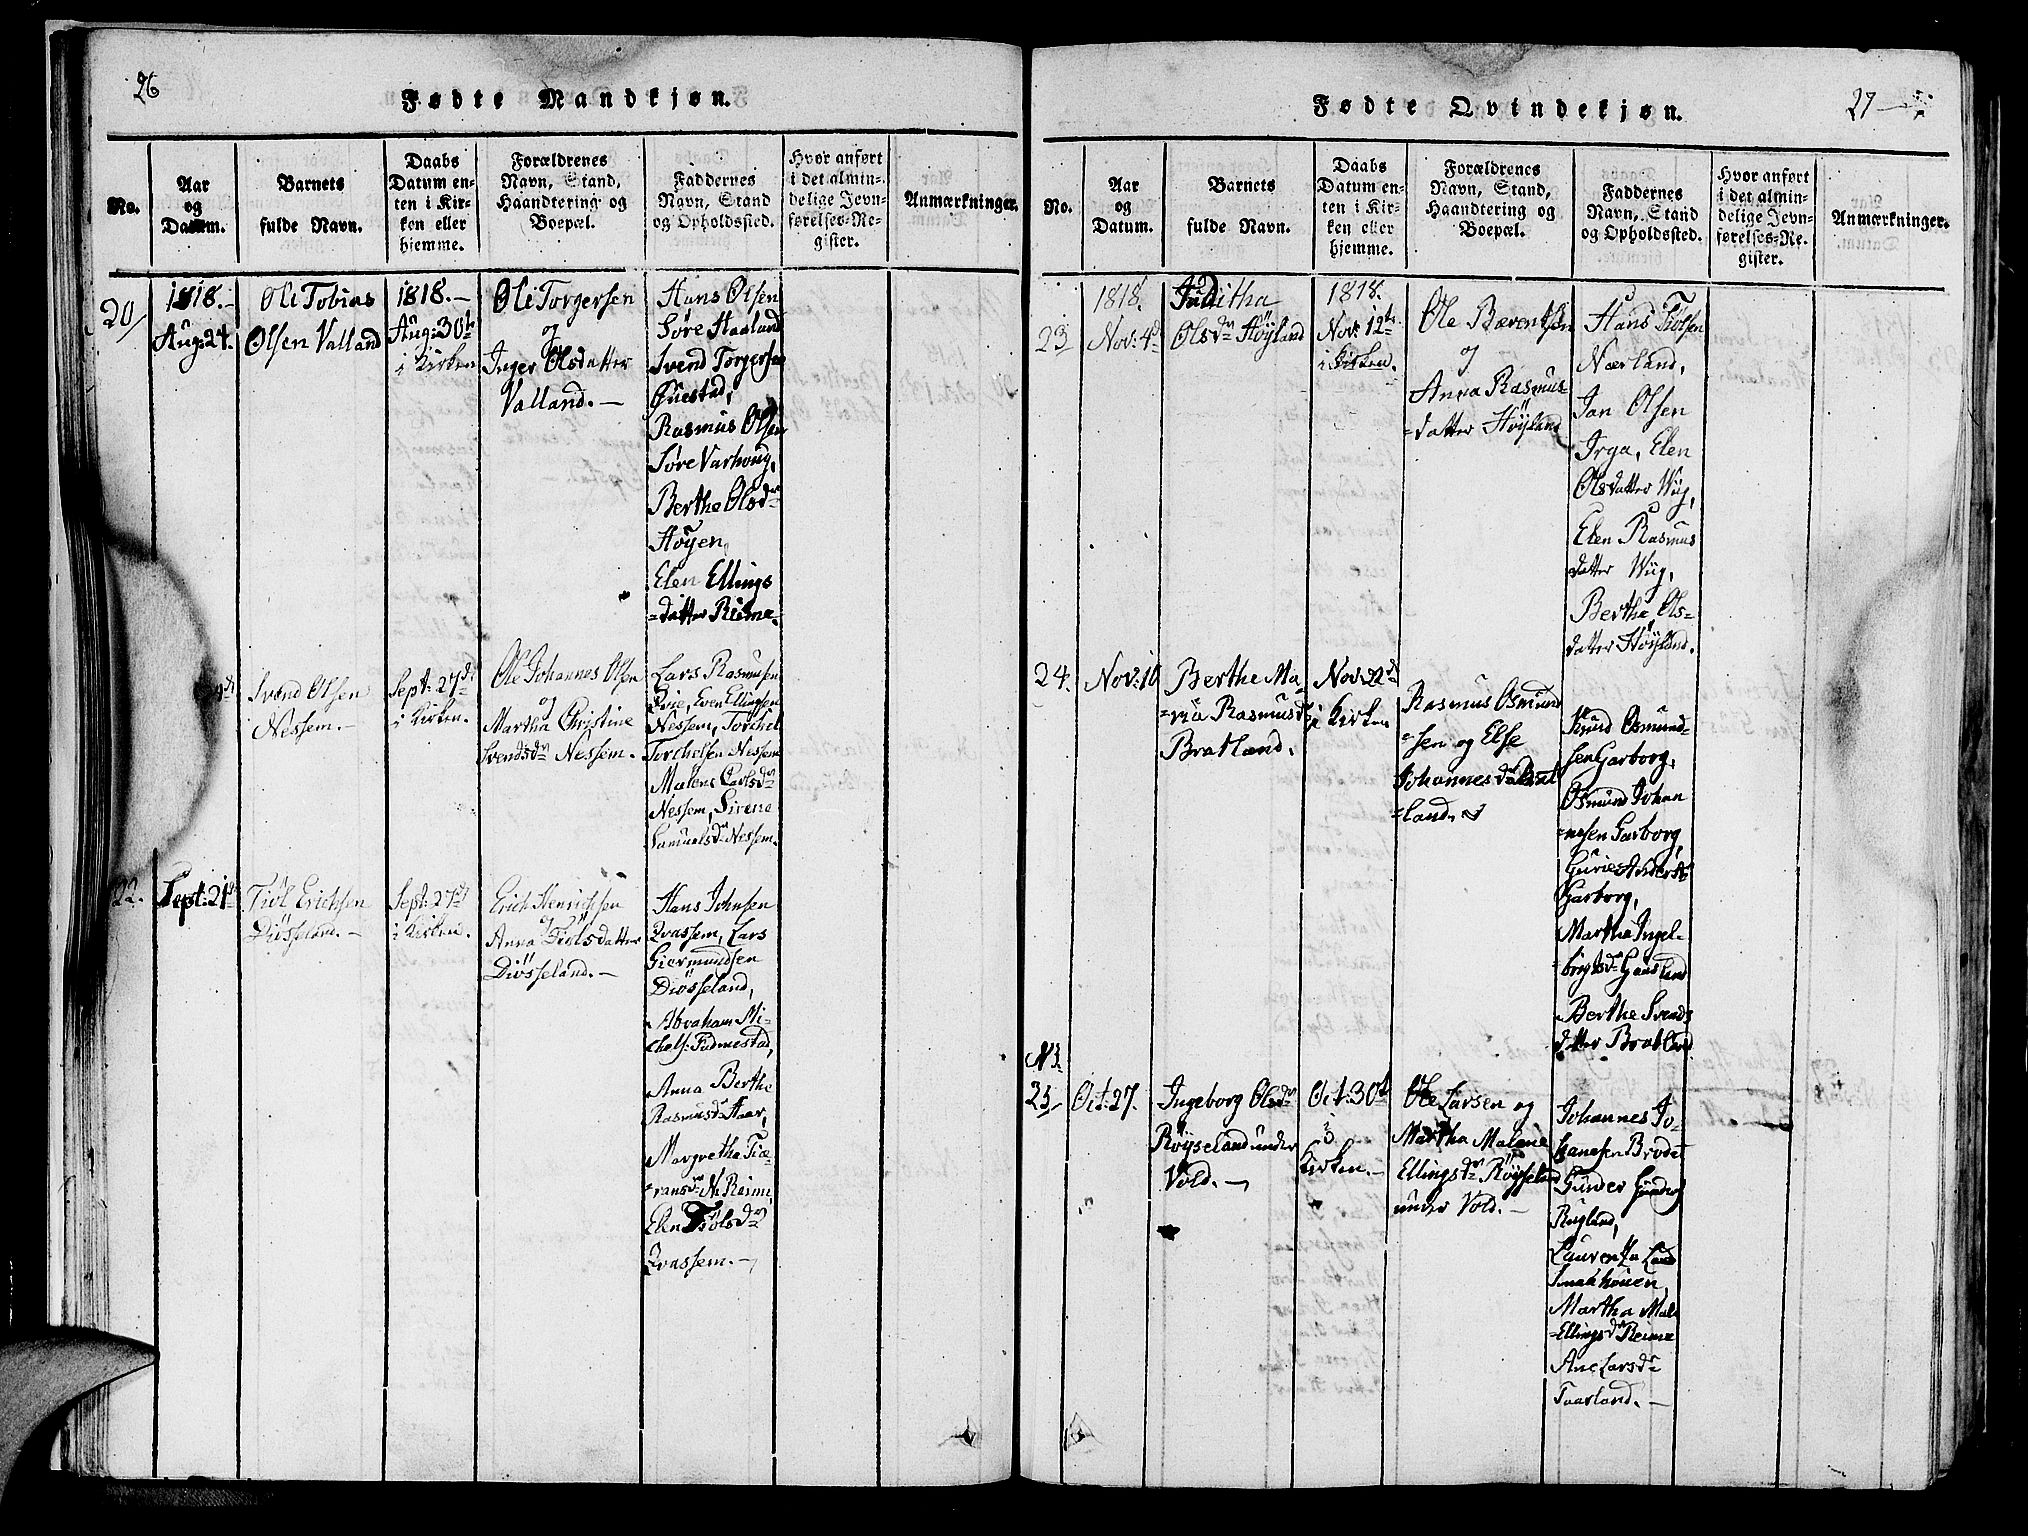 26
Fødte Mandkjøn.
No.
Aar
og
Datum.
Barnets
fulde Navn.
Daabs
Datum en-
ten i Kir-
ken eller
hjemme.
Forældrenes
Navn, Stand,
Haandtering og
Boepæl.
Faddernes
Navn, Stand
og Opholdssted.
Hvor anført
i det almin-
delige Jevn-
førelses-Re-
gister.
Anmærkninger.
20
1818.-
Aug: 24.
Ole Tobias
Olsen Valland
1818.-
Aug: 30te
i Kirken
Ole Torgersen
og
Inger Olsdatter
Valland.-
Hans Olsen
Søre Haaland
Svend Torgersen
Rasmus Olsen
Søre Varhoug,
Berthe Olsdr
Høyen,
Elen Ellings
=datter Reime.
Svend Olsen
Nessem.-
Sept: 27de
i Kirken.
Ole Johannes Olsen
og
Martha Christine
Svendsdr Nessem.
Lars Rasmusen
Qvie, Even Ellingsen
Nessem, Torchel
Torchelsen Nessem
Malene Larsdr
Nessem, Sirene
Samuelsdr Nessem.
22.
Sept: 21de
Tiøl Erichsen
Diøsseland.-
Sept: 27de
i Kirken.
Erich Henrichsen
og
Anna Tiølsdatter
Diøsseland.-
Hans Johnsen
Qvassem, Lars
Giermundsen
Diøsseland,
Abraham Mi-
chels: Fudmestad,
Anna Berthe
Rasmusdr Haar,
Margretha Tiæ-
=ransdr N: Reime,
Elen Tiølsdr
Qvassem.-
27
Fødte Qvindekjøn.
No.
Aar
og
Datum.
Barnets
fulde Navn.
Daabs
Datum en-
ten i Kir-
ken eller
hjemme.
Forældrenes
Navn, Stand,
Haandtering og
Boepæl.
Faddernes
Navn, Stand
og Opholdssted.
Hvor anført
i det almin-
delige Jevn-
førelses-Re-
gister.
Anmærkninger.
23
1818.
Nov: 4de
Juditha
Olsdr Høyland
1818.
Nov: 12te
i Kirken.
Ole Bærentsen
og
Anna Rasmus
=datter Høyland
Hans Tiølsen
Nærland,
Jan Olsen
Irga, Elen
Olsdatter Wiig,
Elen Rasmus
datter Wiig,
Berthe Ols=
datter Høyland.
24.
Nov: 10
Berthe Ma-
=ria Rasmusdr
Bratland.
Nov: 22de
i Kirken
Rasmus Osmund
=sen og Else
Johannesdr Brat
=land.
Knud Osmund-
sen Garborg,
Osmund Johan
=nesen Garborg,
Gurie Andersdr
Garborg,
Martha Ingel-
=borgtsdr Gausland
Berthe Svends
datter Bratland
N3.
25
Oct: 27.
Ingeborg Olsdr
Røyseland under
Vold.-
Oct: 30te
i
Kirken.-
Ole Larsen og
Martha Malene
Ellingsdr Røyseland
under Vold.-
Johannes Jo-
hanesen Brode
Gunder Gunders
Rugland,
Martha Mal:
=Ellingsdr Reime
Ane Larsdr
Taarland.-